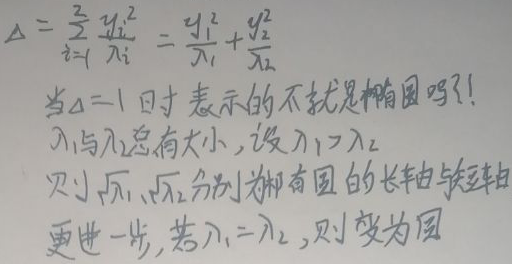 Δ = \sum_{i=1}^{2} \frac{y_i^2}{λ_i} = \frac{y_1^2}{λ_1} + \frac{y_2^2}{λ_2}
当Δ=1时表示的不就是椭圆吗?!
λ_1与λ_2总有大小,设λ_1>λ_2
则√λ_1、√λ_2分别为椭圆的长轴与短轴
更进一步,若λ_1=λ_2,则变为圆